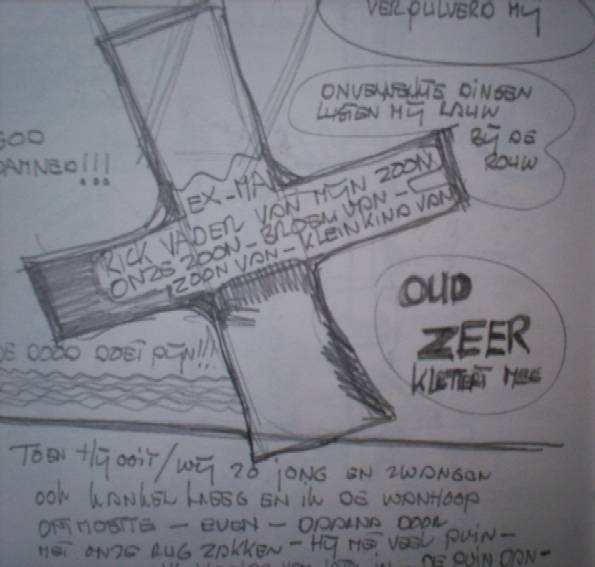 VERPULVERD MIJ
ONVERWERKTE DINGEN
LUSTEN MIJ RAUW
BIJ DE
ROUW
GOD
DAMNED!!!
EX-MAN
RICK VADER VAN MIJN ZOON
ONZE ZOON - BROER VAN -
ZOON VAN - KLEINKIND VAN
OUD
ZEER
KLETTERT MEE
DE DOOD DOET PIJN!!!
TOEN HIJ OOIT/WIJ ZO JONG EN ZWANGER
OOK KANKER KREEG EN IK DE WANHOOP
ONTMOETTE - EVEN - DAARNA DOOR
MET ONZE RUG ZAKKEN - HIJ MET VEEL PUIN -
DE PUIN